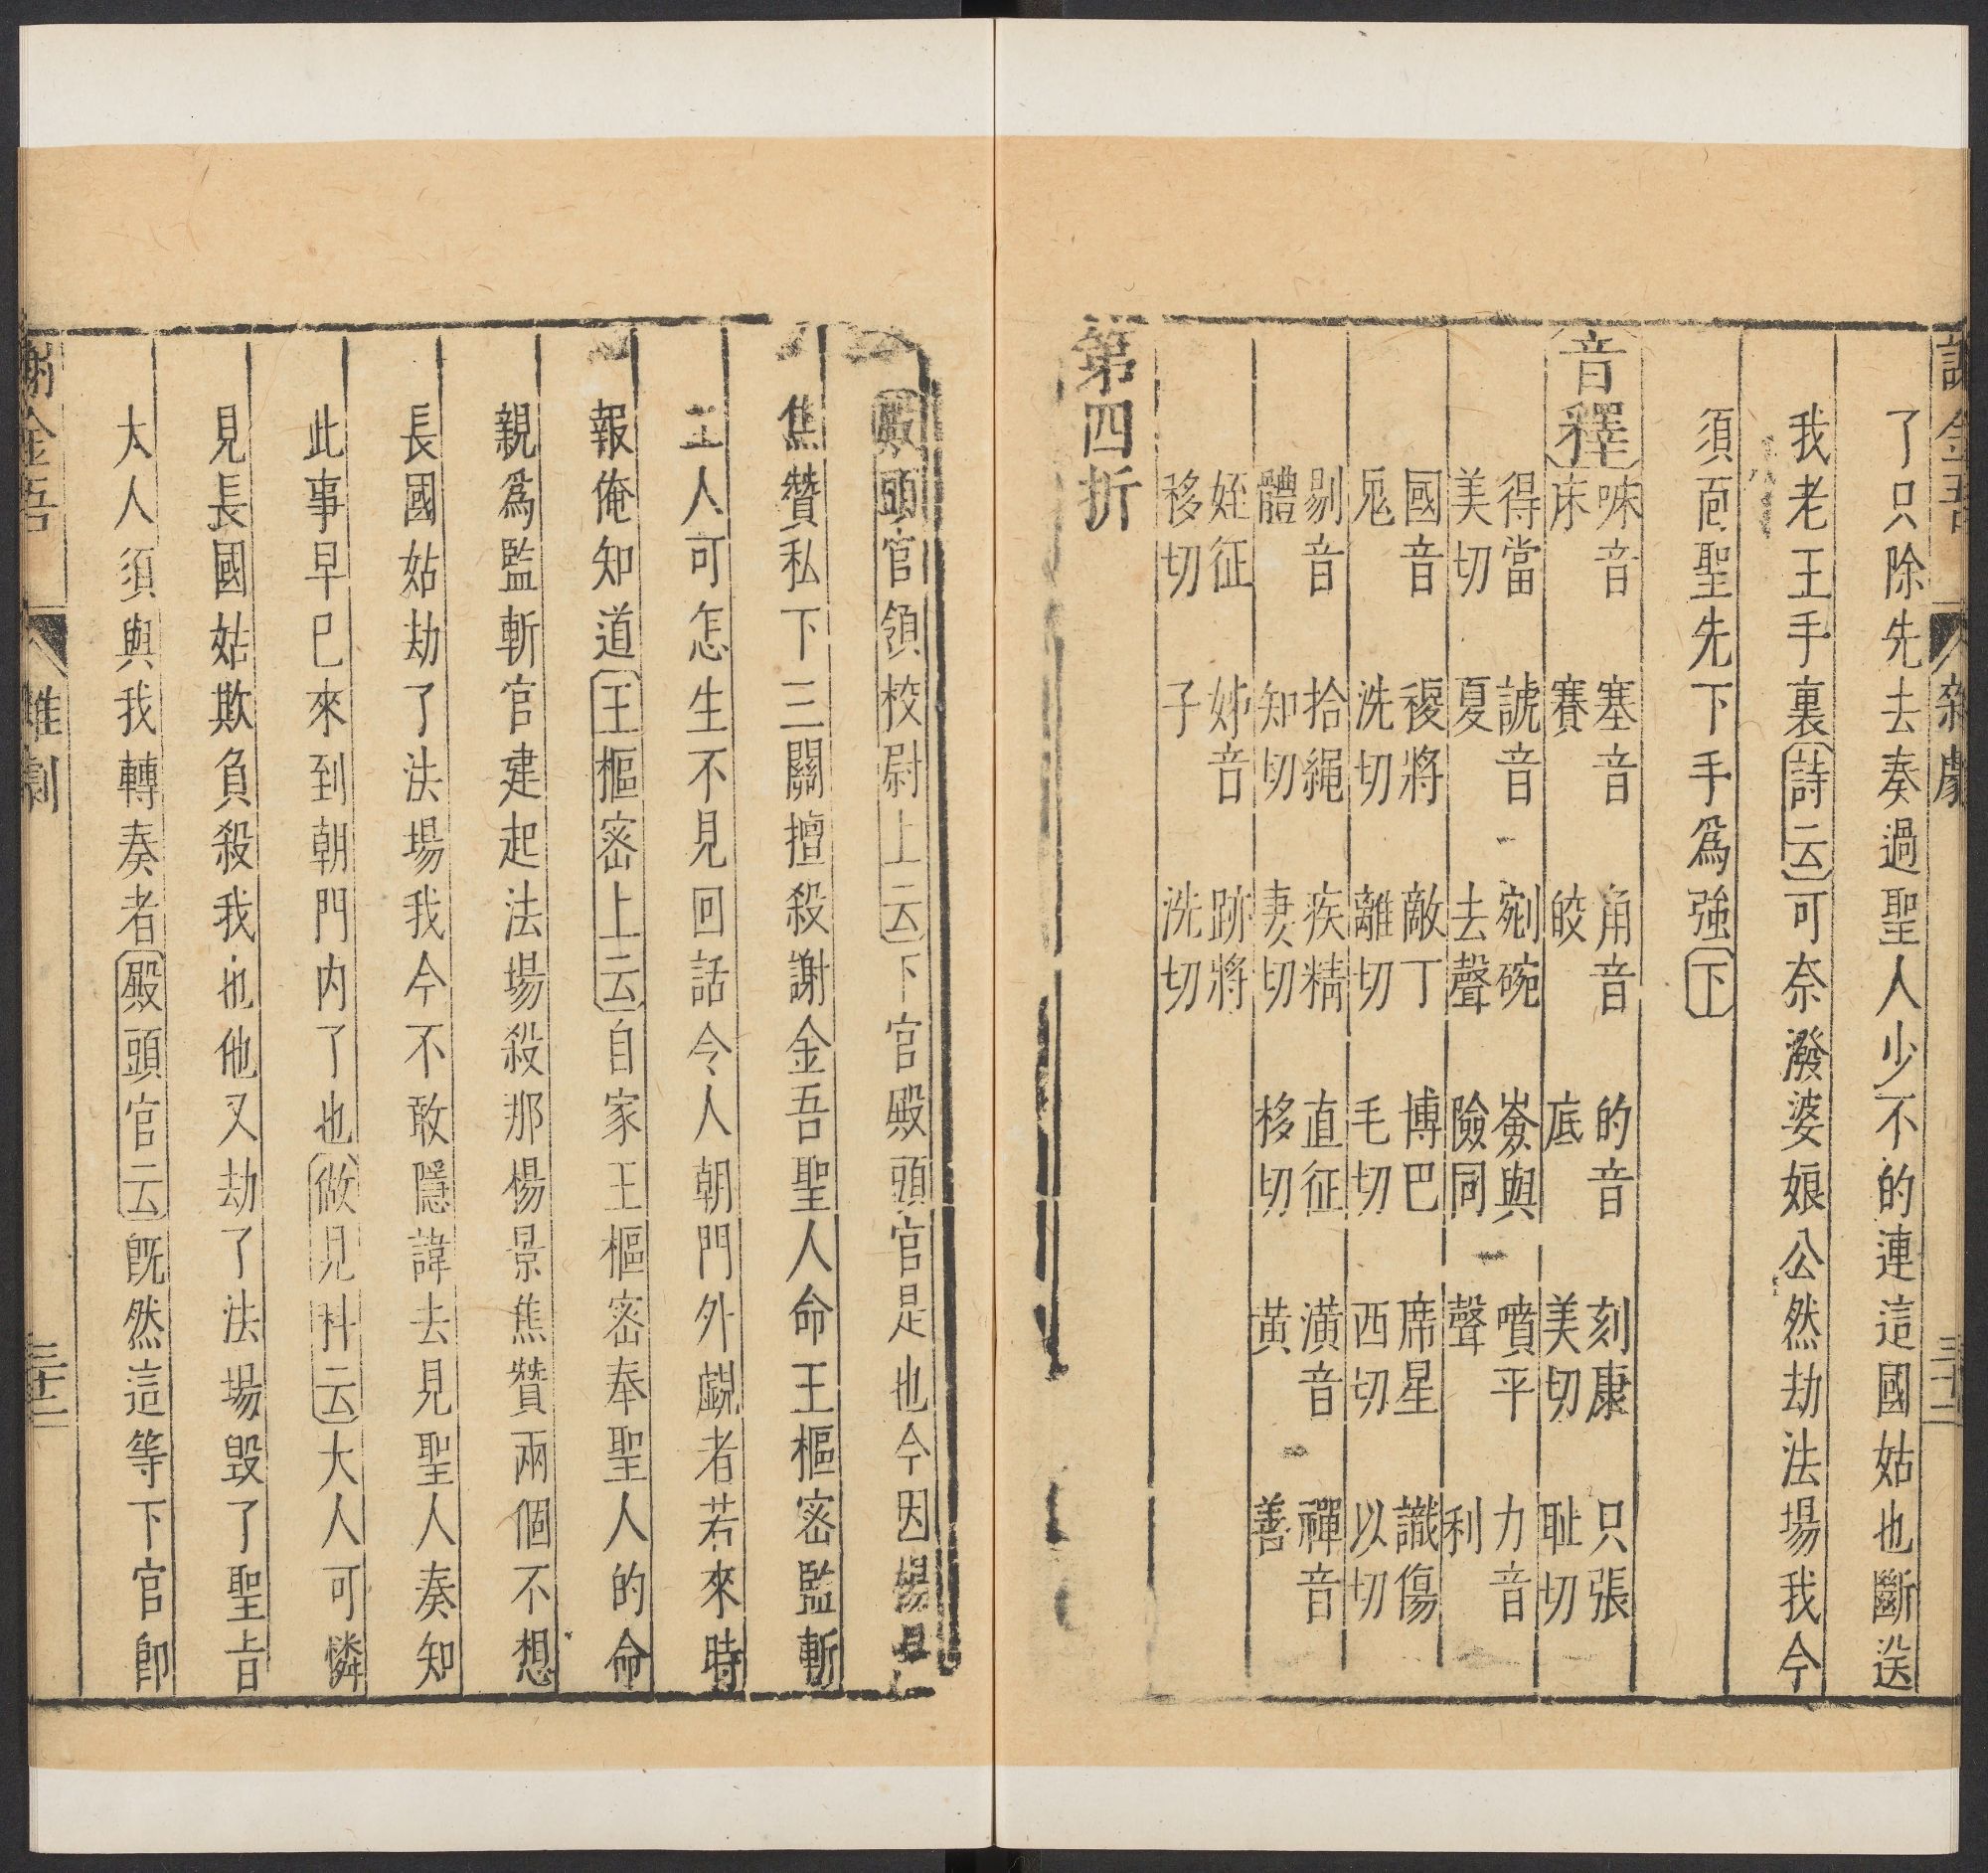 謝金吾　雜劇　三十二
了只除先去奏過聖人少不的連這國姑也斷送
我老王手裏詩云可奈潑婆娘公然劫法場我今
須面聖先下手爲強下
音釋　味音床　塞音賽　角音皎　的音底　刻康美切　只張恥切
得當美切　諕音夏　剜碗去聲　嶮與險同　噴平聲　力音利
國音鬼　稷將洗切　敵丁離切　博巴毛切　席星西切　識傷以切
剔音體　拾繩知切　疾精妻切　直征移切　潢音黃　禪音善
姪征移切　姊音子　跡將洗切
第四折
殿頭官領校尉上云下官殿頭官是也今因楊景
焦贊私下三關擅殺謝金吾聖人命王樞密監斬
二人可怎生不見回話令人朝門外覷者若來時
報俺知道王樞密上云自家王樞密奉聖人的命
親爲監斬官建起法場殺那楊景焦贊兩個不想
長國姑劫了法場我今不敢隱諱去見聖人奏知
此事早已來到朝門內了也做見科云大人可憐
見長國姑欺負殺我也他又劫了法場毀了聖旨
大人須與我轉奏者殿頭官云既然這等下官卽
謝金吾　雜劇　三十二